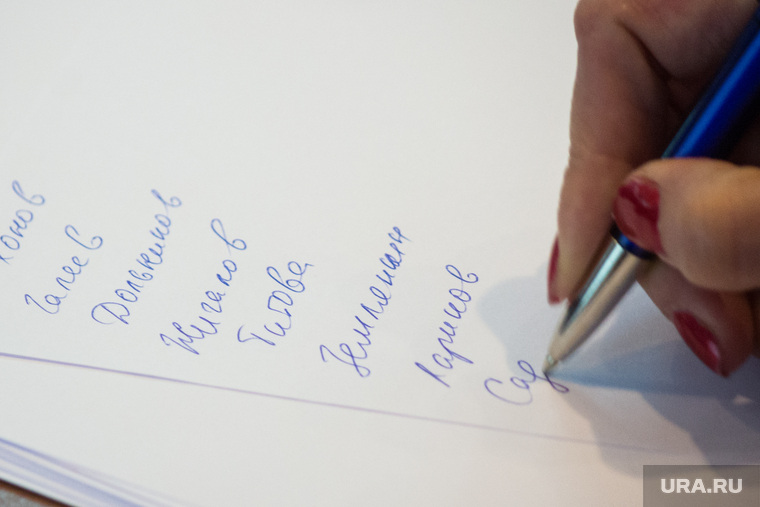 хонов
Галеев
Дольников
Жигалов
Титова
Землянин
Ларинов
Сад
URA.RU